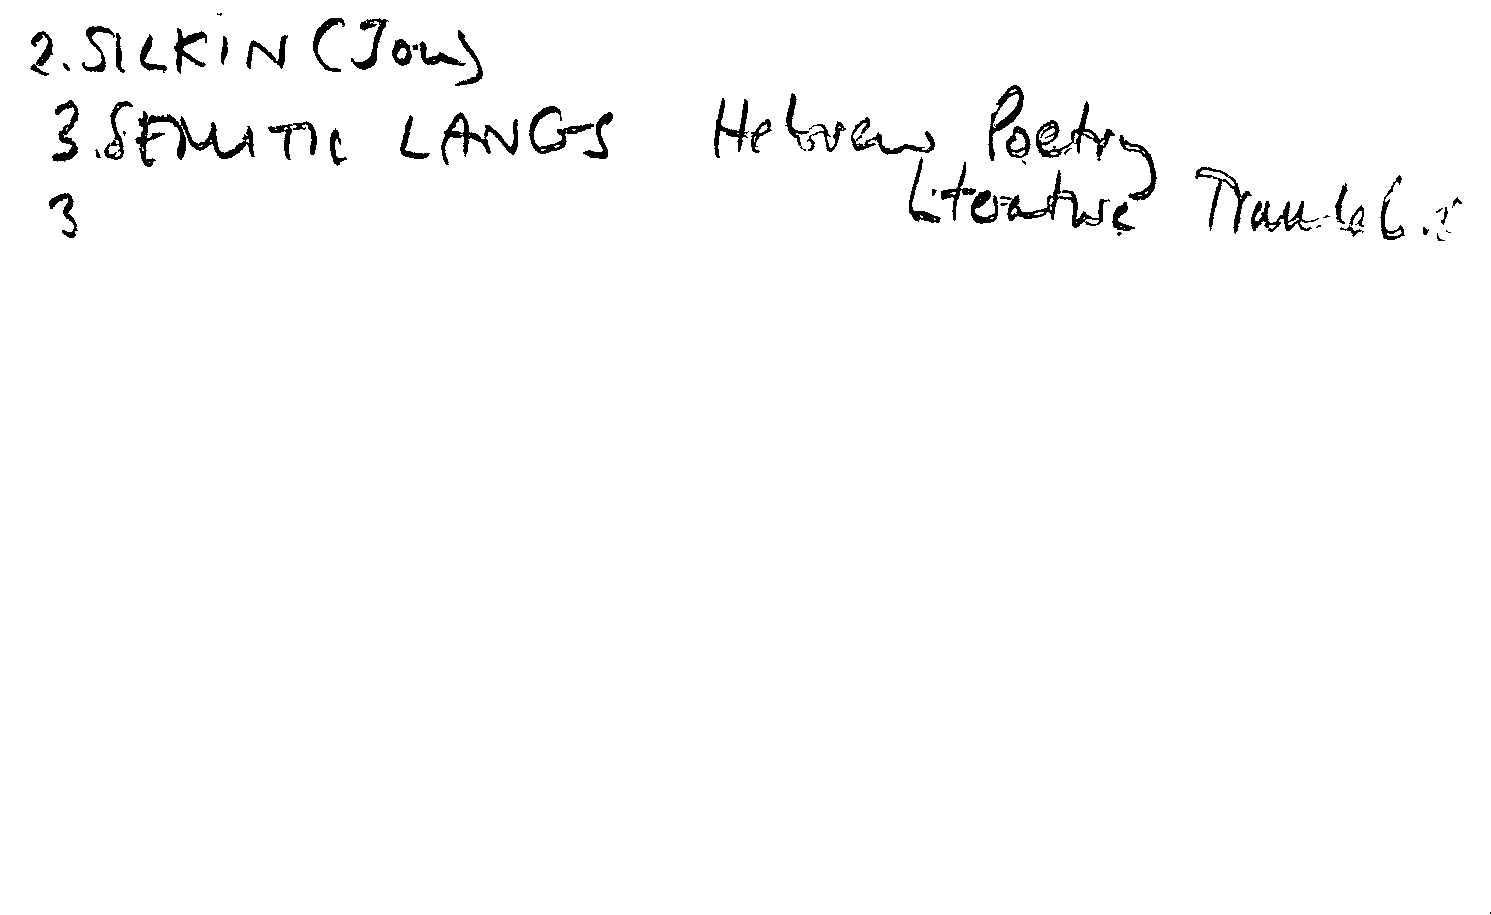 2. SILKIN (Jon)
3. SEMITIC LANGS Hebrew Poetry
3 Literature